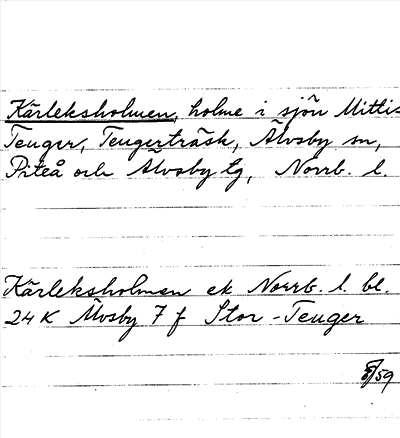 Kärleksholmen, holme i sjön Mittis
Teuger, Teugerträsk, Älvsby sn,
Piteå och Älvsby tg, Norrb. l.
Kärleksholmen ek Norrb. l. bl.
24 K Älvsby 7 f Stor-Teuger
8/59